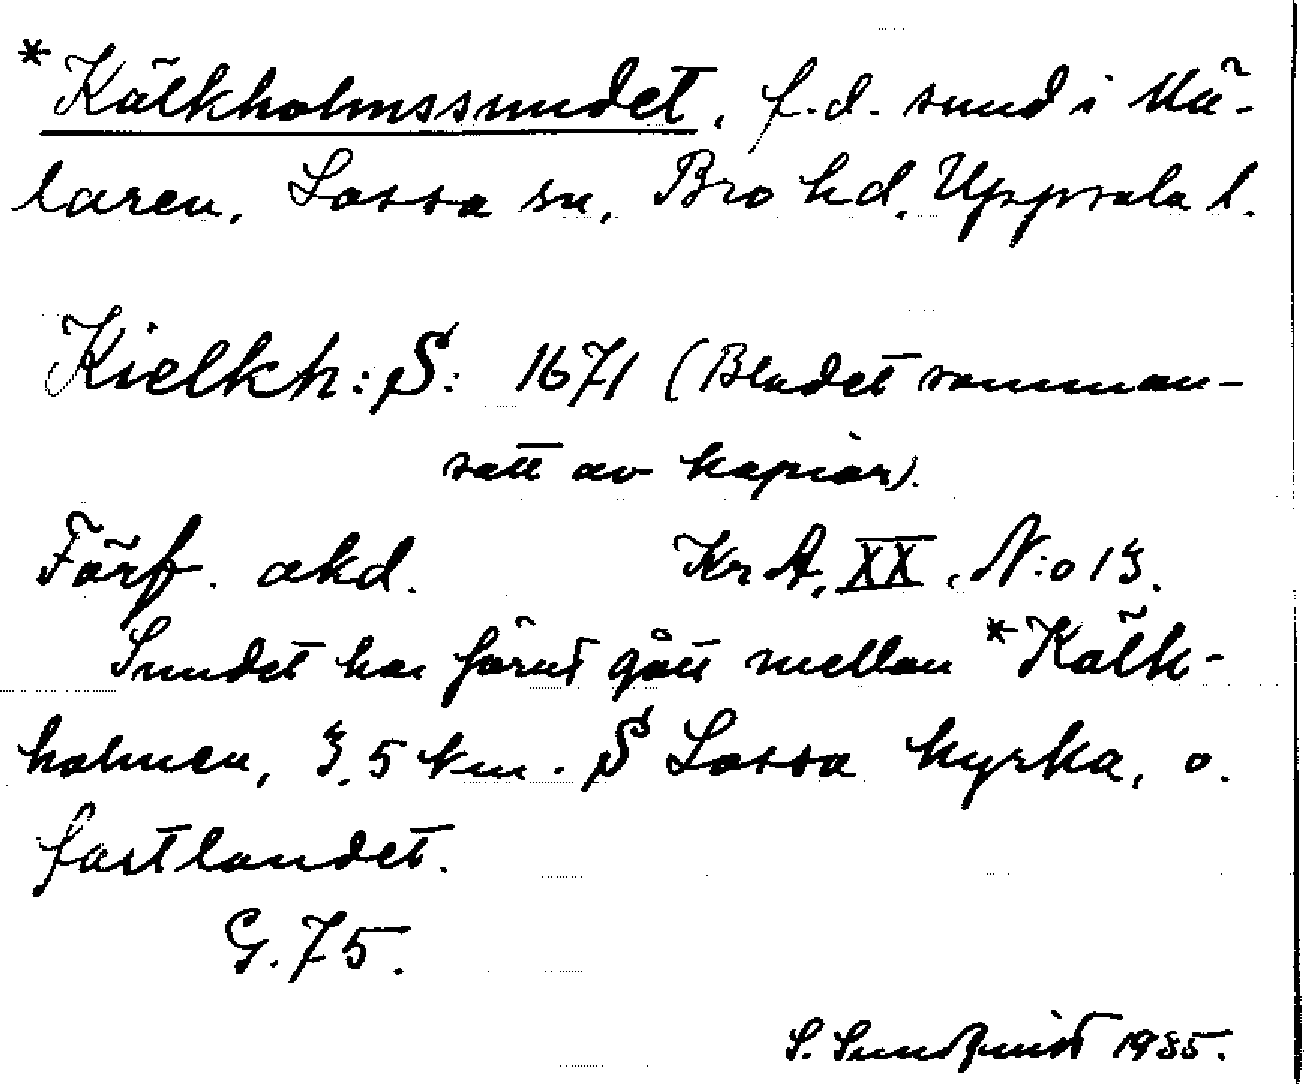 *Kälkholmssundet, f.d. sund i Mä-
laren, Lossa sn, Bro hd, Uppsala l.
Kielkh: S: 1671 (Bladet samman-
satt av kopior).
Förf. akd. KrA, XX, N:o 13.
Sundet har förut gått mellan *Kälk-
holmen, 3,5 km. S Lossa kyrka, o.
fastlandet.
G. 75.
S. Sundquist 1935.